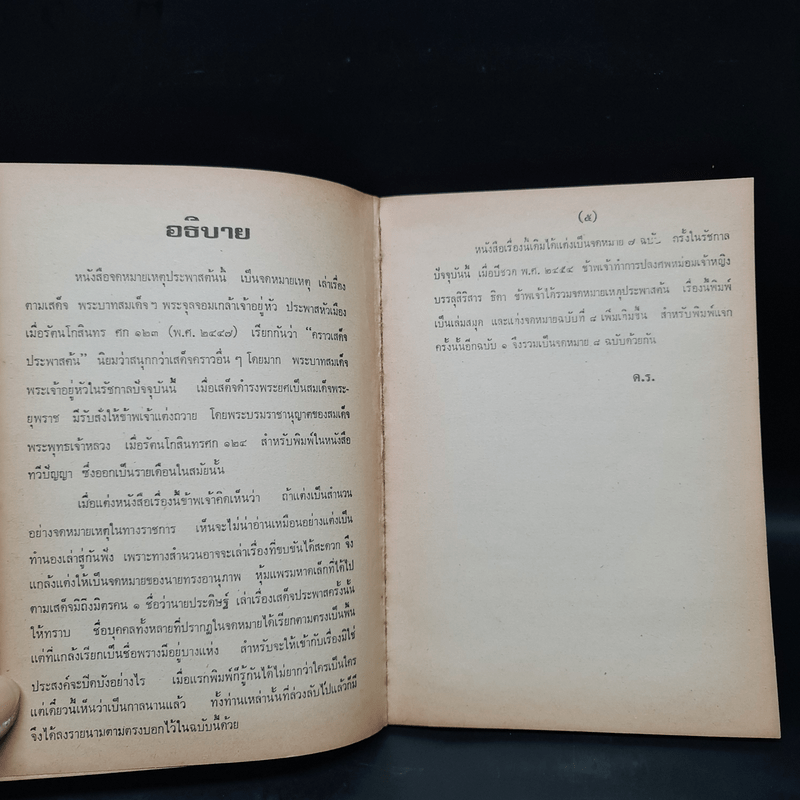 อธิบาย
หนังสือจดหมายเหตุประพาสต้นนี้ เป็นจดหมายเหตุ เล่าเรื่อง
ตามเสด็จ พระบาทสมเด็จ ฯ พระจุลจอมเกล้าเจ้าอยู่หัว ประพาสหัวเมือง
เมื่อรัตนโกสินทร ศก ๑๒๓ (พ.ศ. ๒๔๔๗) เรียกกันว่า “คราวเสด็จ
ประพาสต้น” นิยมว่าสนุกกว่าเสด็จคราวอื่น ๆ โดยมาก พระบาทสมเด็จ
พระเจ้าอยู่หัวในรัชกาลปัจจุบันนี้ เมื่อเสด็จดำรงพระยศเป็นสมเด็จพระ-
ยุพราช มีรับสั่งให้ข้าพเจ้าแต่งถวาย โดยพระบรมราชานุญาตของสมเด็จ
พระพุทธเจ้าหลวง เมื่อรัตนโกสินทรศก ๑๒๔ สำหรับพิมพ์ในหนังสือ
ทวีปัญญา ซึ่งออกเป็นรายเดือนในสมัยนั้น
เมื่อแต่งหนังสือเรื่องนี้ข้าพเจ้าคิดเห็นว่า ถ้าแต่งเป็นสำนวน
อย่างจดหมายเหตุในทางราชการ เห็นจะไม่น่าอ่านเหมือนอย่างแต่งเป็น
ทำนองเล่าสู่กันฟัง เพราะทางสำนวนอาจจะเล่าเรื่องที่ขบขันได้สะดวก จึง
แกล้งแต่งให้เป็นจดหมายของนายทรงอานุภาพ หุ้มแพรมหาดเล็กที่ได้ไป
ตามเสด็จมีถึงมิตรคน ๑ ชื่อว่านายประดิษฐ์ เล่าเรื่องเสด็จประพาสครั้งนั้น
ให้ทราบ ชื่อบุคคลทั้งหลายที่ปรากฏในจดหมายได้เรียกตามตรงเป็นพื้น
แต่ที่แกล้งเรียกเป็นชื่อพรางมีอยู่บางแห่ง สำหรับจะให้เข้ากับเรื่องมิใช่
ประสงค์จะปิดบังอย่างไร เมื่อแรกพิมพ์ก็รู้กันได้ไม่ยากว่าใครเป็นใคร
แต่เดี๋ยวนี้เห็นว่าเป็นกาลนานแล้ว ทั้งท่านเหล่านั้นที่ล่วงลับไปแล้วก็มี
จึงได้ลงรายนามตามตรงบอกไว้ในฉบับนี้ด้วย
(๕)
หนังสือเรื่องนี้เดิมได้แต่งเป็นจดหมาย ๗ ฉบับ ครั้งในรัชกาล
ปัจจุบันนี้ เมื่อปีชวด พ.ศ. ๒๔๕๔ ข้าพเจ้าทำการปลงศพหม่อมเจ้าหญิง
บรรลุศิริสาร ธิดา ข้าพเจ้าได้รวมจดหมายเหตุประพาสต้น เรื่องนี้พิมพ์
เป็นเล่มสมุด และแต่งจดหมายฉบับที่ ๔ เพิ่มเติมขึ้น สำหรับพิมพ์แจก
ครั้งนั้นอีกฉบับ ๑ จึงรวมเป็นจดหมาย ๘ ฉบับด้วยกัน
ด.ร.